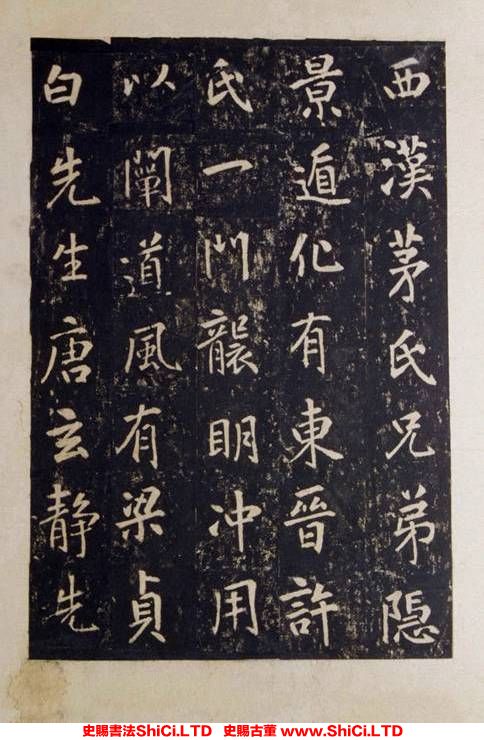 西漢茅氏兄弟隱
景遁化有東晉許
氏一門襲明沖用
以闡道風有梁貞
白先生唐玄靜先
史賜書法ShiCi.LTD 史賜古董 www.ShiCi.LTD